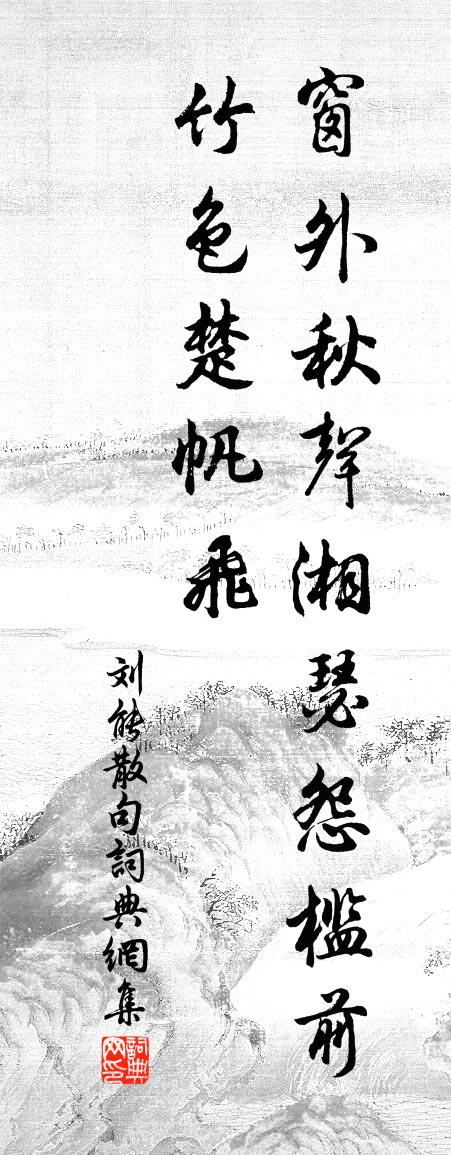 窗外秋聲湘瑟怨檻前
竹色楚帆飛
刘能散句詞典網集
詞典网印